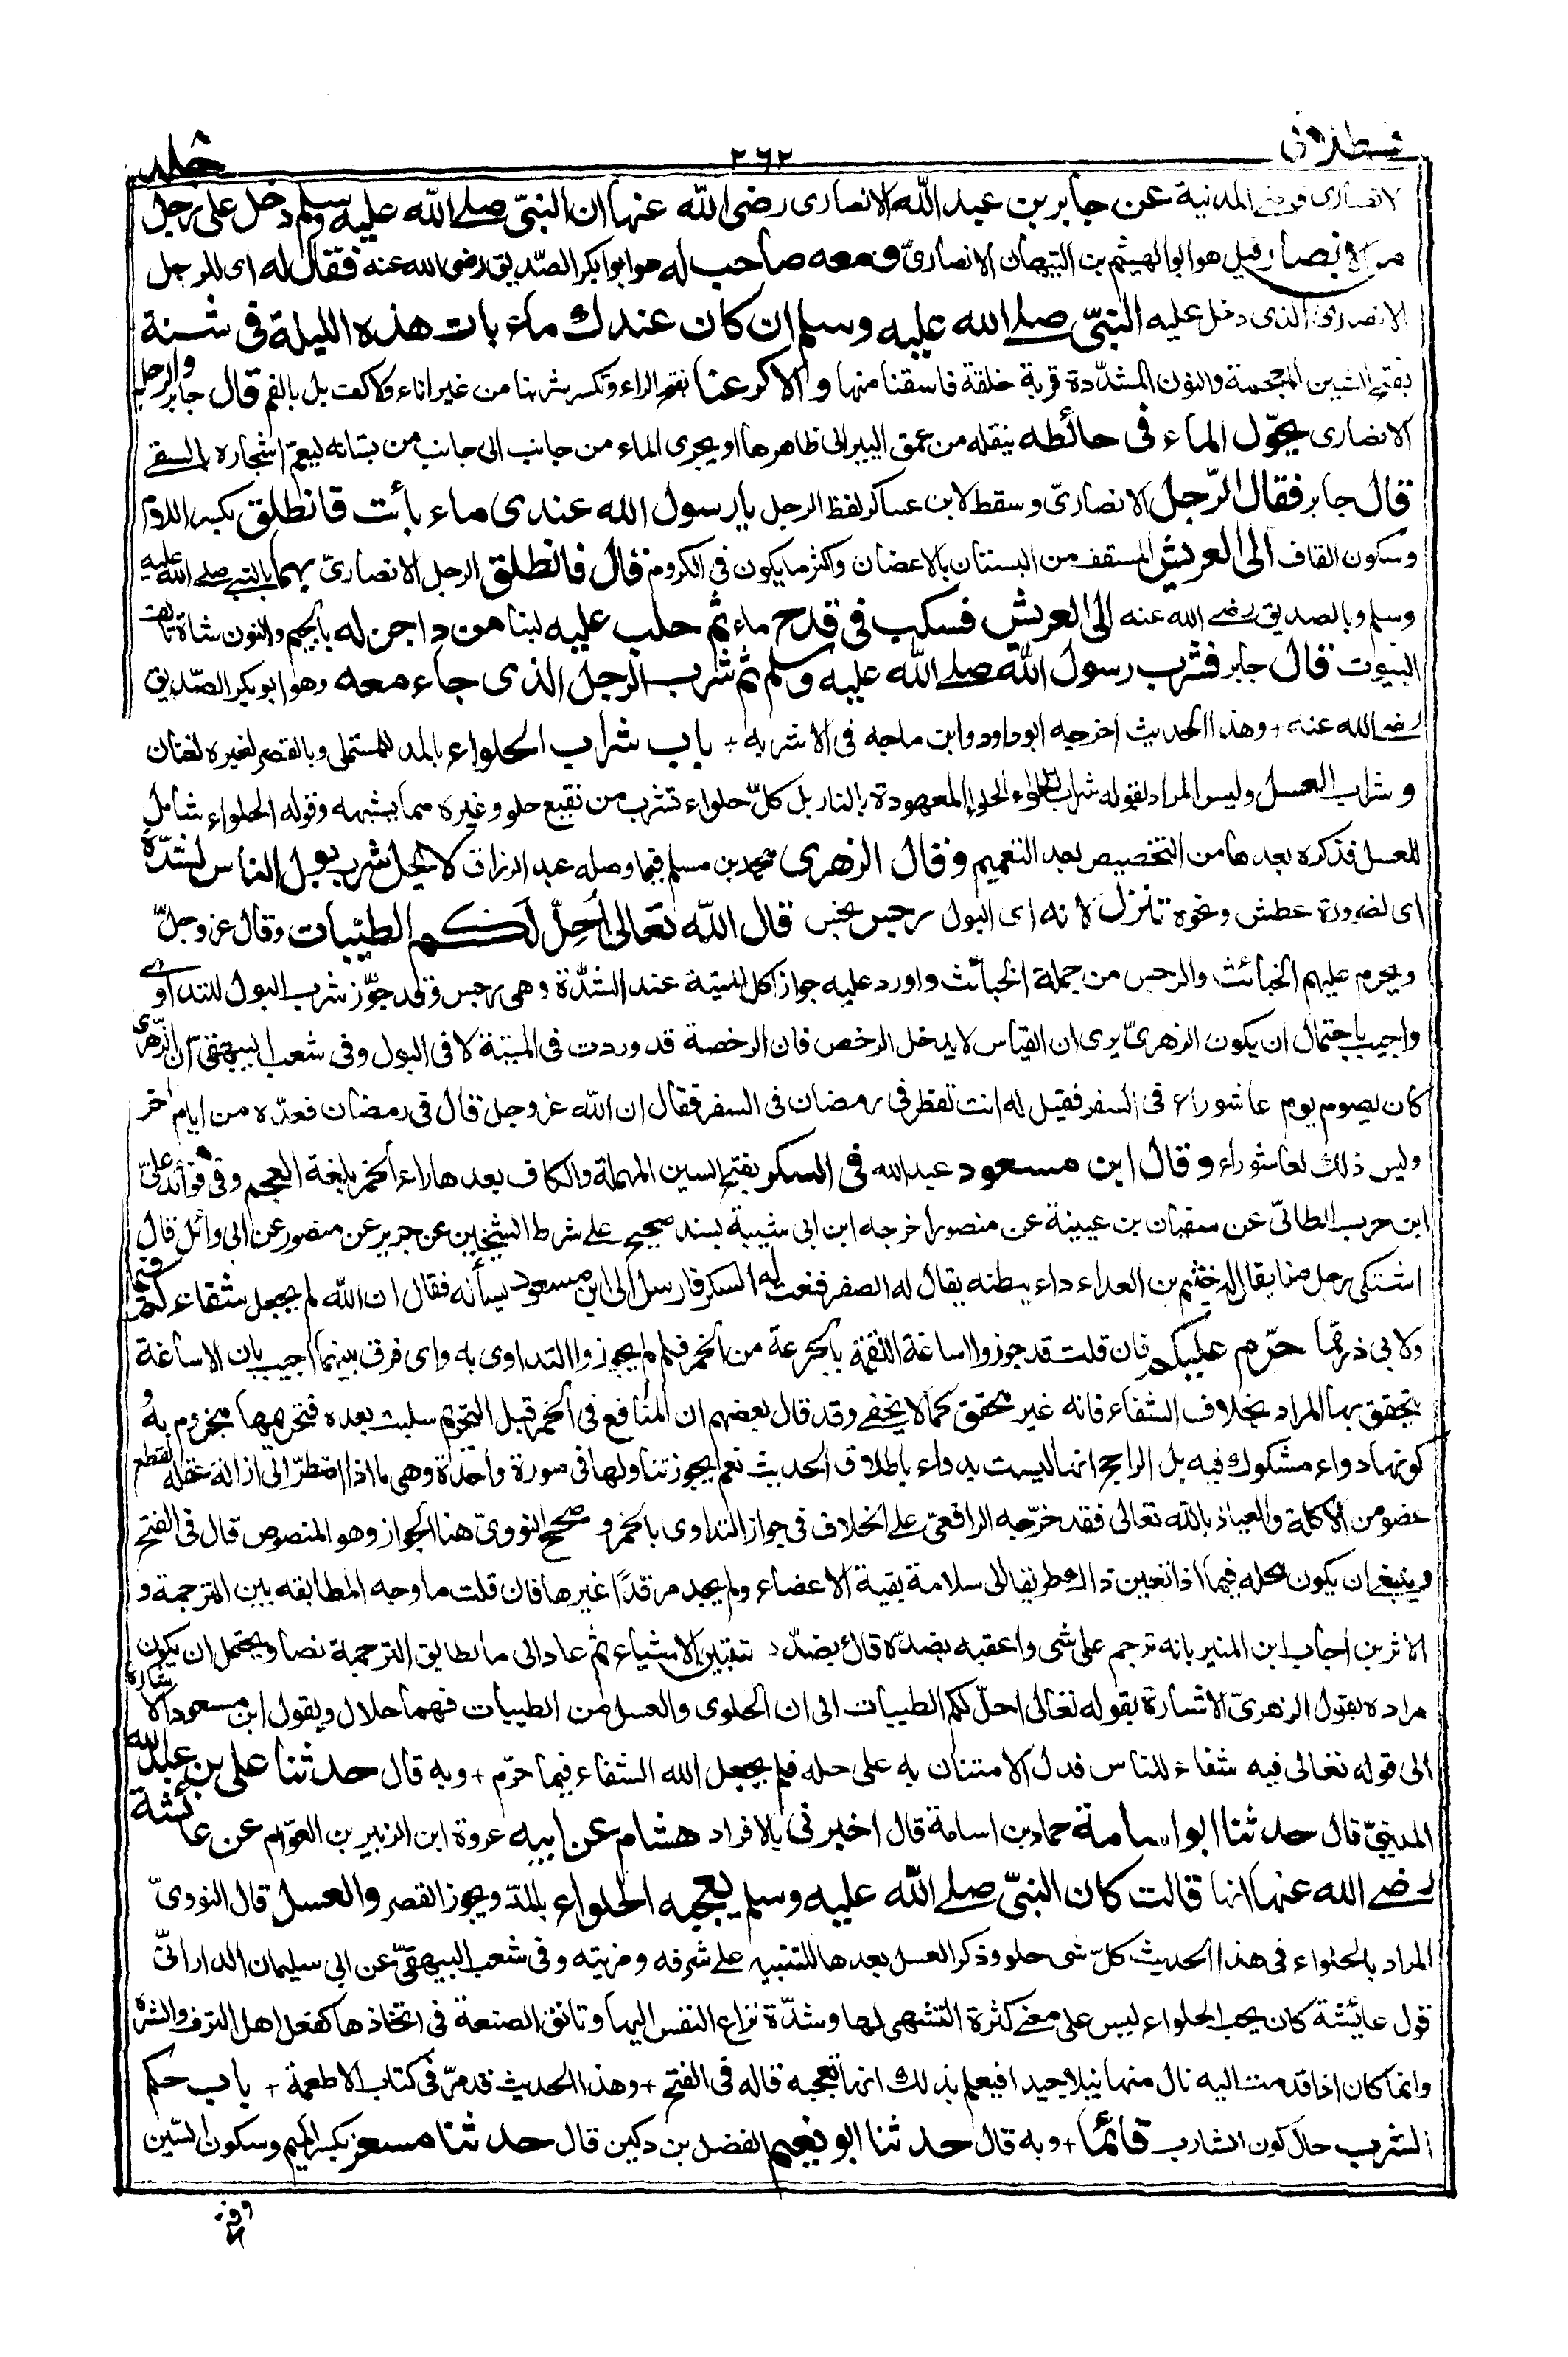 قسطلانی ٢٦٢ جلد
الانصاری قاضی المدنیة عن جابر بن عبد الله الانصاری رضی الله عنهما ان النبیّ صلے الله علیه وسلم دخل علی رجل
من الانصار قیل هو ابو الهیثم بن التیهان الانصاریّ ومعه صاحب له هو ابو بکر الصّدیق رضی الله عنه فقال له ای للرجل
الانصاری الذی دخل علیه النبیّ صلے الله علیه وسلم ان کان عندك ماء بات هذه اللیلة فی شنة
بفتح الشین المعجمة والنون المشدّدة قربة خلقة فاسقنا منها والا کرعنا بفتح الراء وتکسر شربنا من غیر اناء ولا کف بل بالفم قال جابر والرجل
الانصاری یحوّل الماء فی حائطه ینقله من عمق البیر الی ظاهرها او یجری الماء من جانب الی جانب من بستانه لیعم اشجاره بالسقے
قال جابر فقال الرّجل الانصاریّ وسقط لابن عساکر لفظ الرجل یا رسول الله عندی ماء بائت فانطلق بکسر اللام
وسکون القاف الی العریش المسقف من البستان بالاغصان واکثر ما یکون فی الکروم قال فانطلق الرجل الانصاریّ بهما بالنبی صلے الله علیه
وسلم وبالصدیق رضے الله عنه الی العریش فسکب فی قدح ماء ثم حلب علیه لبنا من داجن له بالجیم والنون شاة تالف
البیوت قال جابر فشرب رسول الله صلے الله علیه وسلم ثم شرب الرجل الذی جاء معه وهو ابو بکر الصّدیق
رضے الله عنه + وهذا الحدیث اخرجه ابو داود وابن ماجه فی الاشربه + باب شراب الحلواء بالمد للمستملی وبالقصر لغیره لغتان
وشراب العسل ولیس المراد بقوله شراب الحلواء الحلواء المعهودة بالنار بل کلّ حلواء تشرب من نقیع حلو وغیره مما یشبهه وقوله الحلواء شامل
للعسل فذکره بعدها من التخصیص بعد التعمیم وقال الزهری محمد بن مسلم فیما وصله عبد الرزاق لا یحل شرب بول الناس لشدّة
ای لضرورة عطش ونحوه تنزل لانه ای البول رجس نجس قال الله تعالی اُحِلّ لَکُم الطیّبات وقال عز وجلّ
ویحرم علیهم الخبائث والرجس من جملة الخبائث واورد علیه جواز اکل المیتة عند الشدّة وهی رجس وقد جوّز شرب البول للتداوے
واجیب باحتمال ان یکون الزهریّ یری ان القیاس لا یدخل الرخص فان الرخصة قد وردت فی المیتة لا فی البول وفی شعب البیهقیّ ان الزّهری
کان یصوم یوم عاشوراء فی السفر فقیل له انت تفطر فی رمضان فی السفر فقال ان الله عز وجل قال فی رمضان فعدّه من ایام اخر
ولیس ذلك لعاشوراء وقال ابن مسعود عبد الله فی السکر بفتح السین المهملة والکاف بعدها راء الخمر بلغة العجم وفی فوائد علیّ
ابن حرب الطائیّ عن سفیان بن عیینة عن منصور اخرجه ابن ابی شیبة بسند صحیح علے شرط الشیخین عن جریر عن منصور عن ابی وائل قال
اشتکی رجل منا یقال له خثیم بن العداء داء ببطنه یقال له الصفر فنعت له السکر فارسل الی ابن مسعود یسأله فقال ان الله لم یجعل شفاءکم فیما
ولابی ذر مما حرّم علیکم فان قلت قد جوزوا اساغة اللقمة بالجرعة من الخمر فلم لم یجوزوا التداوی به وای فرق بینهما اجیب بان الاساغة
یتحقق بها المراد بخلاف الشفاء فانه غیر محقق کما لا یخفے وقد قال بعضهم ان المنافع فی الخمر قبل التحریم سلبت بعده فتحریمها مجزوم به و
کونها دواء مشکوك فیه بل الراجح انها لیست بدواء باطلاق الحدیث نعم یجوز تناولها فی صورة واحدة وهی ما اذا اضطرّ الی ازالة عقله لقطع
عضو من الاکلة والعیاذ بالله تعالی فقد خرّجه الرافعیّ علے الخلاف فی جواز التداوی بالخمر وصحح النوویّ هنا الجواز وهو المنصوص قال فی الفتح
وینبغے ان یکون محله فیما اذا تعین ذالك طریقا الی سلامة بقیة الاعضاء ولم یجد مرقدًا غیرها فان قلت ما وجه المطابقه بین الترجمة و
الاثرین اجاب ابن المنیر بانه ترجم علی شی واعقبه بضدّه قال بضدّها تتبین الاشیاء ثم عاد الی ما یطابق الترجمة نصا ویحتمل ان یکون
مراده بقول الزهریّ الاشارة بقوله تعالی احلّ لکم الطیبات الی ان الحلوی والعسل من الطیبات فهما حلال وبقول ابن مسعود الاشارة
الی قوله تعالی فیه شفاء للناس فدل الامتنان به علی حله فلم یجعل الله الشفاء فیما حرّم + وبه قال حدثنا علی بن عبد الله
المدینیّ قال حدثنا ابو اسامة حماد بن اسامة قال اخبرنی بالافراد هشام عن ابیه عروة ابن الزبیر بن العوّام عن عائشة
رضے الله عنها انها قالت کان النبیّ صلے الله علیه وسلم یعجبه الحلواء بالمدّ ویجوز القصر والعسل قال النوویّ
المراد بالحلواء فی هذا الحدیث کلّ شی حلو وذکر العسل بعدها للتنبیه علے شرفه ومزیته وفی شعب البیهقیّ عن ابی سلیمان الدارانیّ
قول عائشة کان یحب الحلواء لیس علی معنے کثرة التشهی لها وشدّة نزاع النفس الیها وتانق الصنعة فی اتخاذها کفعل اهل الترف والشره
وانما کان اذا قدمت الیه نال منها نیلا جیدا فیعلم بذلك انها تعجبه قاله فی الفتح + وهذا الحدیث قد مرّ فی کتاب الاطعمة + باب حکم
الشرب حال کون الشارب قائما + وبه قال حدثنا ابو نعیم الفضل بن دکین قال حدثنا مسعر بکسر المیم وسکون السّین